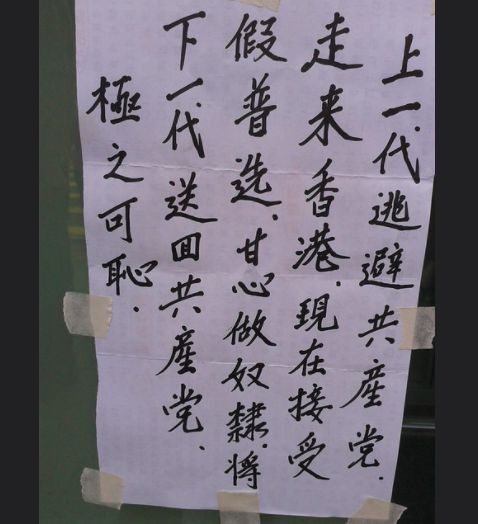 上一代逃避共產党.
走来香港.現在接受
假普选.甘心做奴隸.将
下一代送回共產党、
極之可恥.